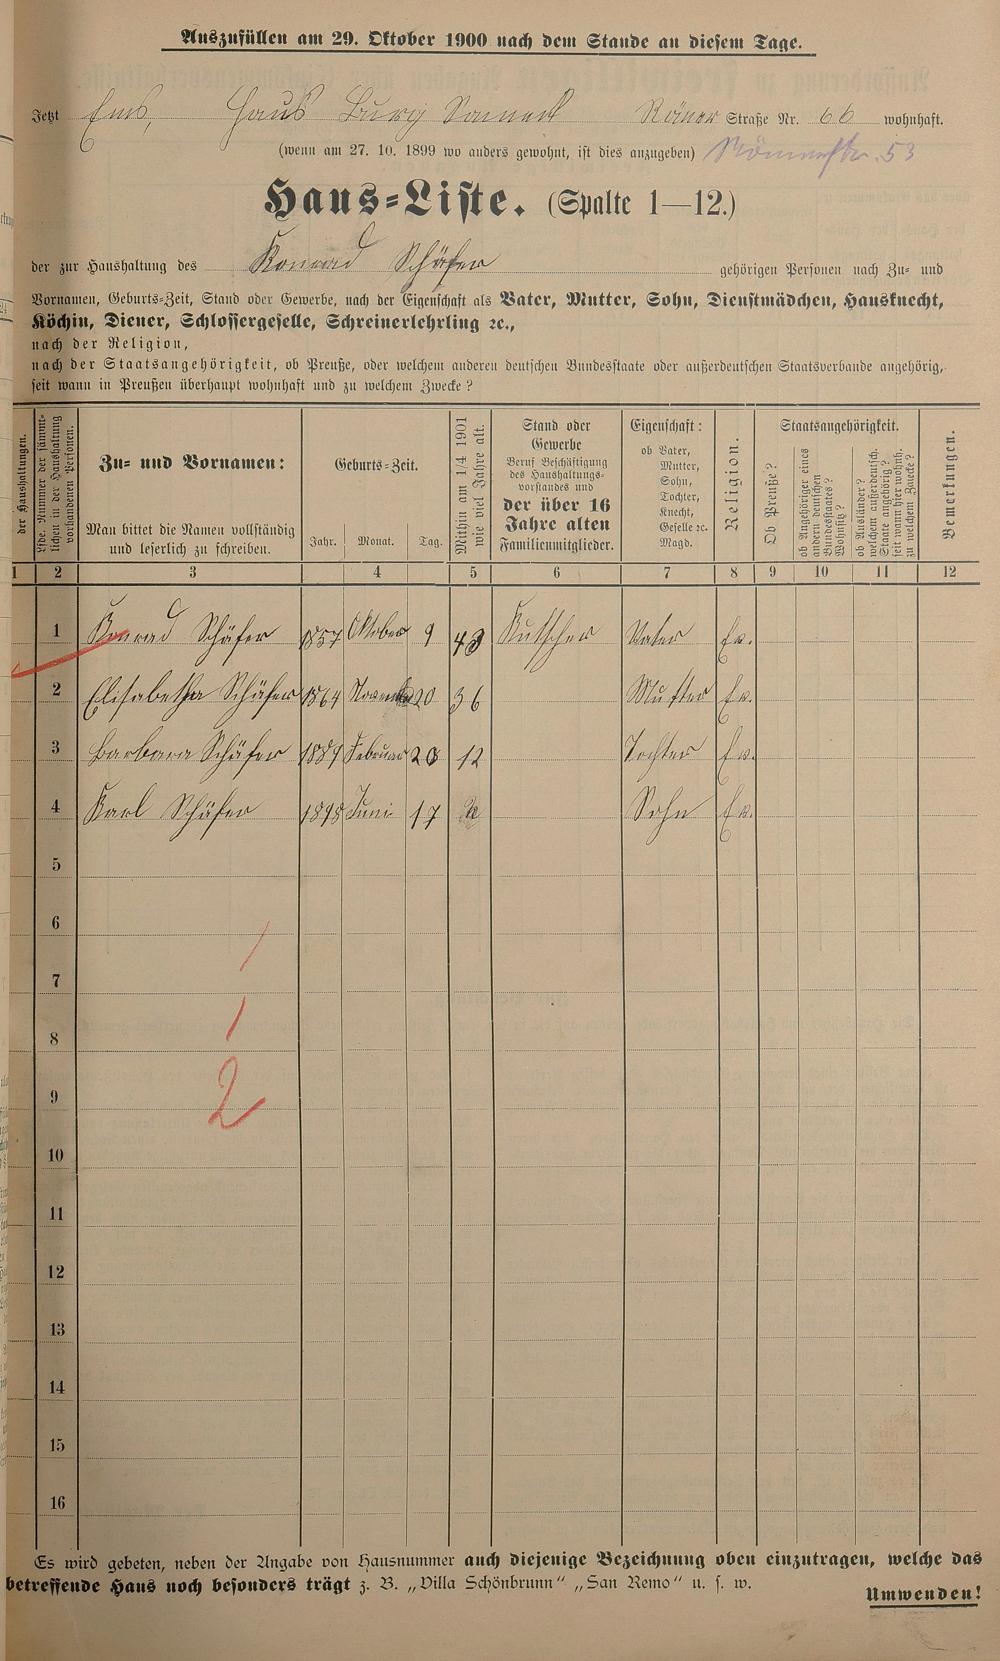 Auszufüllen am 29. Oktober 1900 nach dem Stande an diesem Tage.
Jetzt Ems, Haus Burg Straße Nr. 66 wohnhaft.
(wenn am 27. 10. 1899 wo anders gewohnt, ist dies anzugeben) Römerstr. 53
Haus-Liste. (Spalte 1—12.)
der zur Haushaltung des Konrad Schäfer gehörigen Personen nach Zu- und
Vornamen, Geburts-Zeit, Stand oder Gewerbe, nach der Eigenschaft als Vater, Mutter, Sohn, Dienstmädchen, Hausknecht,
Köchin, Diener, Schlossergeselle, Schreinerlehrling ꝛc.,
nach der Religion,
nach der Staatsangehörigkeit, ob Preuße, oder welchem anderen deutschen Bundesstaate oder außerdeutschen Staatsverbande angehörig,
seit wann in Preußen überhaupt wohnhaft und zu welchem Zwecke?
der Haushaltungen.
Lfde. Nummer der sämmt-
lichen in der Haushaltung
vorhandenen Personen.
Zu- und Vornamen:
Man bittet die Namen vollständig
und leserlich zu schreiben.
Geburts-Zeit.
Jahr. Monat. Tag.
Mithin am 1/4 1901
wie viel Jahre alt.
Stand oder
Gewerbe
Beruf Beschäftigung
des Haushaltungs-
vorstandes und
der über 16
Jahre alten
Familienmitglieder.
Eigenschaft:
ob Vater,
Mutter,
Sohn,
Tochter,
Knecht,
Geselle ꝛc.
Magd.
Religion.
Staatsangehörigkeit.
Ob Preuße?
ob Angehöriger eines
andern deutschen
Bundesstaates?
Wohnsitz?
ob Ausländer?
welchem außerdeutsch.
Staate angehörig?
seit wann hier wohnh.
zu welchem Zwecke?
Bemerkungen.
1 2 3 4 5 6 7 8 9 10 11 12
1 Konrad Schäfer 1857 Oktober 9 43 Kutscher Vater Ev.
2 Elisabetha Schäfer 1864 November 20 36 Mutter Ev.
3 Barbara Schäfer 1889 Februar 12 Tochter Ev.
4 Karl Schäfer 1898 Juni 17 2 Sohn Ev.
5
6
7
8
9
10
11
12
13
14
15
16
1
1
2
Es wird gebeten, neben der Angabe von Hausnummer auch diejenige Bezeichnung oben einzutragen, welche das
betreffende Haus noch besonders trägt z. B. „Villa Schönbrunn“ „San Remo“ u. s. w.
Umwenden!